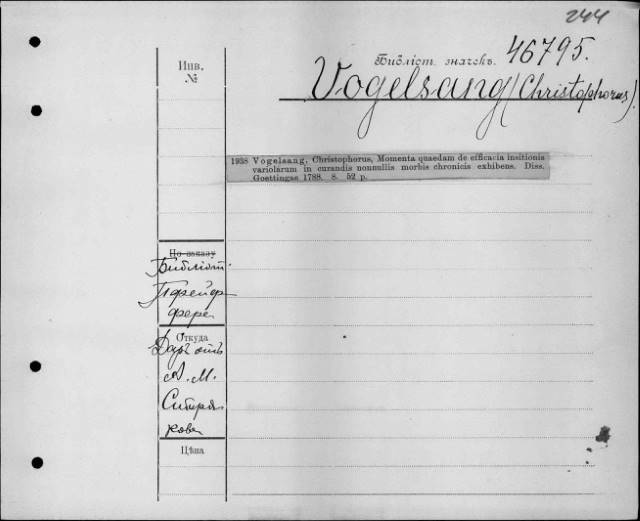 244
Библіот. значекъ. 46795.
Vogelsang (Christophorus).
Инв.
№
1938 Vogelsang, Christophorus, Momenta quaedam de efficacia insitionis
variolarum in curandis nonnullis morbis chronicis exhibens. Diss.
Goettingae 1788. 8. 52 p.
По заказу
Библіот.
Пфейф
фера
Откуда
Даръ отъ
А. М.
Сибиря
кова
Цѣна